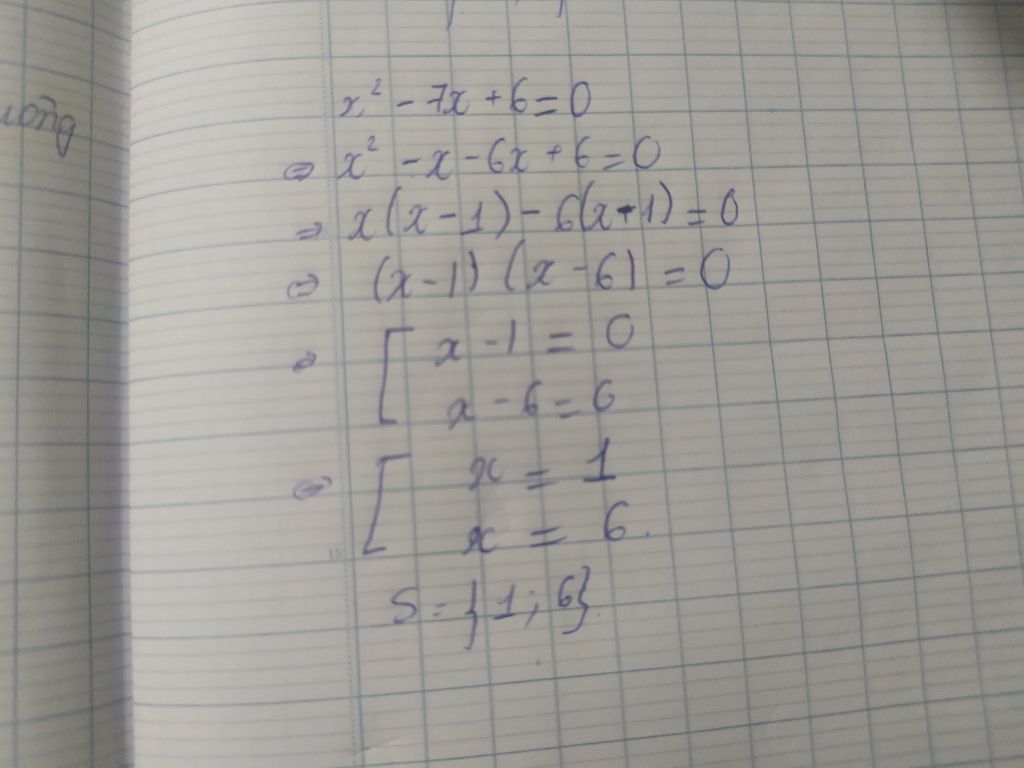 uống
x² - 7x + 6 = 0
⇔ x² - x - 6x + 6 = 0
⇔ x(x - 1) - 6(x - 1) = 0
⇔ (x - 1) (x - 6) = 0
⇔ [ x - 1 = 0
x - 6 = 6
⇔ [ x = 1
x = 6.
S = {1; 6}.